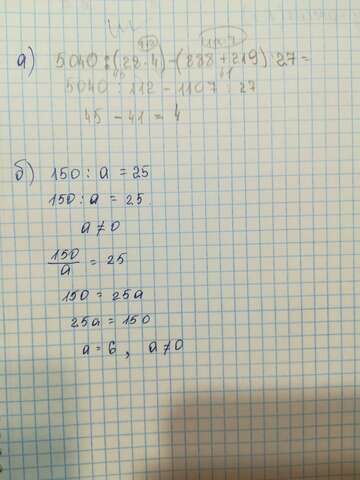 а) 5040 : (28·4) - (888 + 219) : 27 =
5040 : 112 - 1107 : 27
45 - 41 = 4
б) 150 : a = 25
150 : a = 25
a ≠ 0
150/a = 25
150 = 25a
25a = 150
a = 6, a ≠ 0